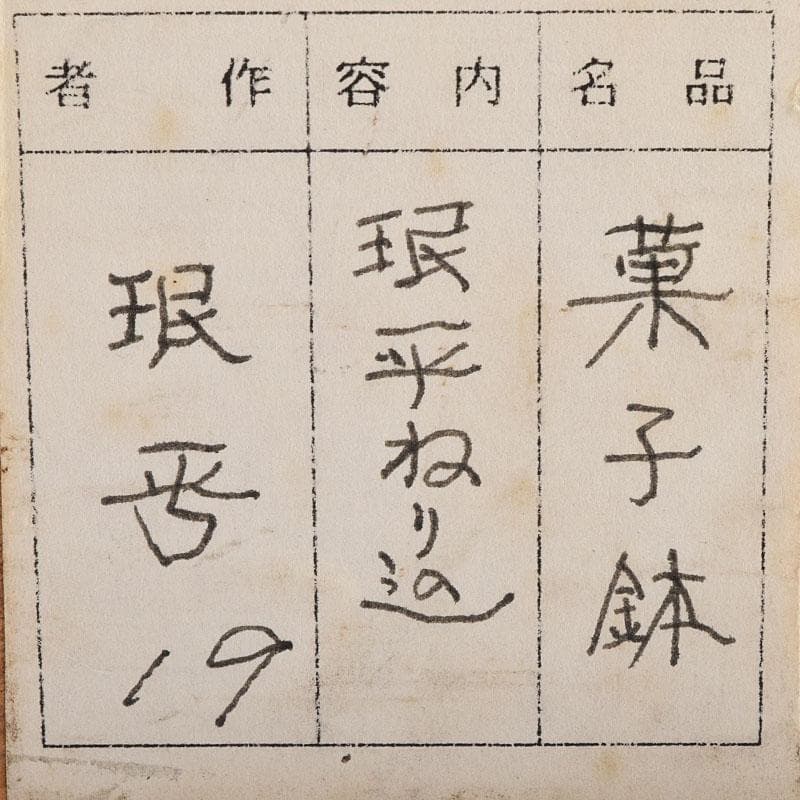 品名
菓子鉢
内容
珉平ねり込
作者
珉平
19